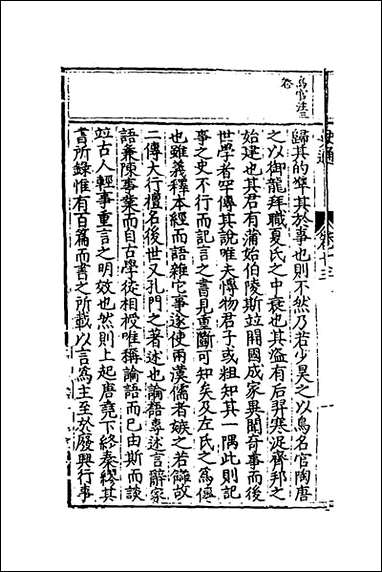 史通 卷十三
歸其的準其於事也則不然乃若少昊之以鳥名官陶唐
之以御龍拜職夏氏之中衰也其盜有后羿寒浞齊邦之
始建也其君有蒲始伯陵斯竝開國成家異聞奇事而後
世學者罕傳其說唯夫博物君子或粗知其一隅此則記
事之史不行而記言之書見重斷可知矣及左氏之爲傳
也雖義釋本經而語雜它事遂使兩漢儒者嫉之若讎故
二傳大行擅名後世又孔門之著述也論語專述言辭家
語兼陳事業而自古學徒相授唯稱論語而已由斯而談
竝古人輕事重言之明效也然則上起唐堯下終秦繆其
書所錄惟有百篇而書之所載以言爲主至於廢興行事
鳥官注三
卷